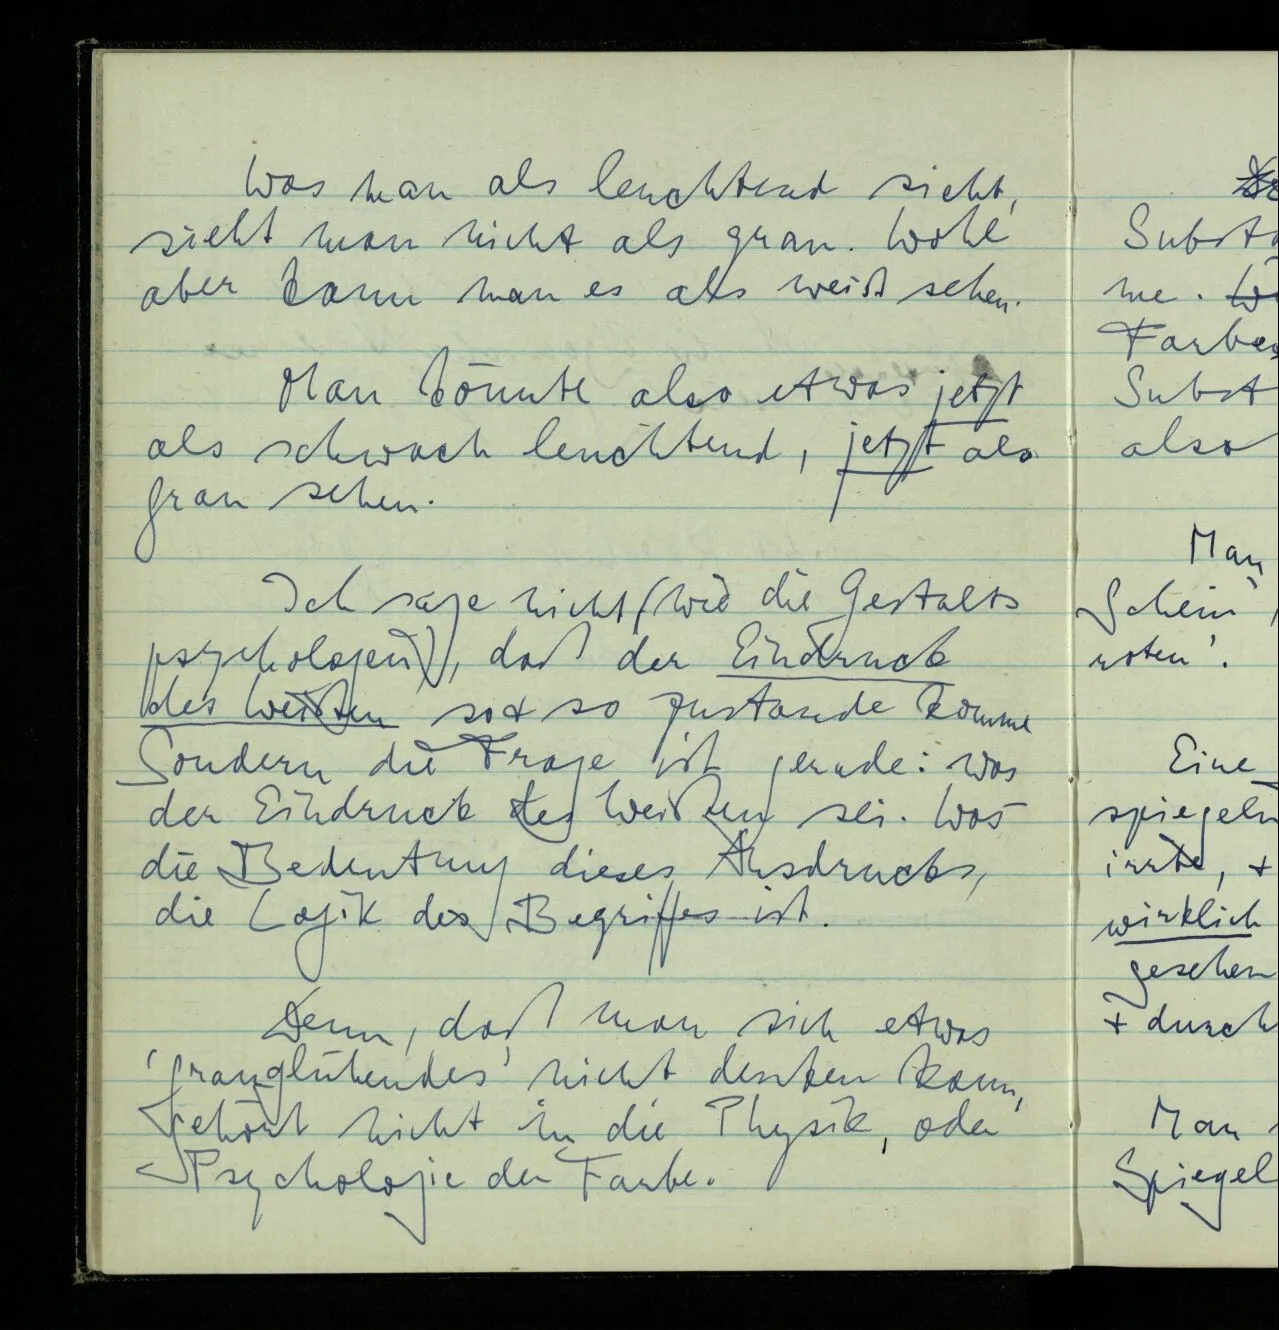 Was man als leuchtend sieht,
sieht man nicht als grau. Wohl
aber kann man es als weiß sehen.
Man könnte also etwas jetzt
als schwach leuchtend, jetzt als
grau sehen.
Ich sage nicht (wie die Gestalts
psychologen), daß der Eindruck
des Weißen so + so zustande komme
Sondern die Frage ist gerade: was
der Eindruck des Weißen sei. Was
die Bedeutung dieses Ausdrucks,
die Logik des Begriffes ist.
Denn, daß man sich etwas
'grauglühendes' nicht denken kann,
gehört nicht in die Physik, oder
Psychologie der Farbe.
Subst
me.
Farbe
Subst
also
Man
Schein'
roten'.
Eine
spiegeln
irrte, +
wirklich
gesehen
+ durch
Man
Spiegel